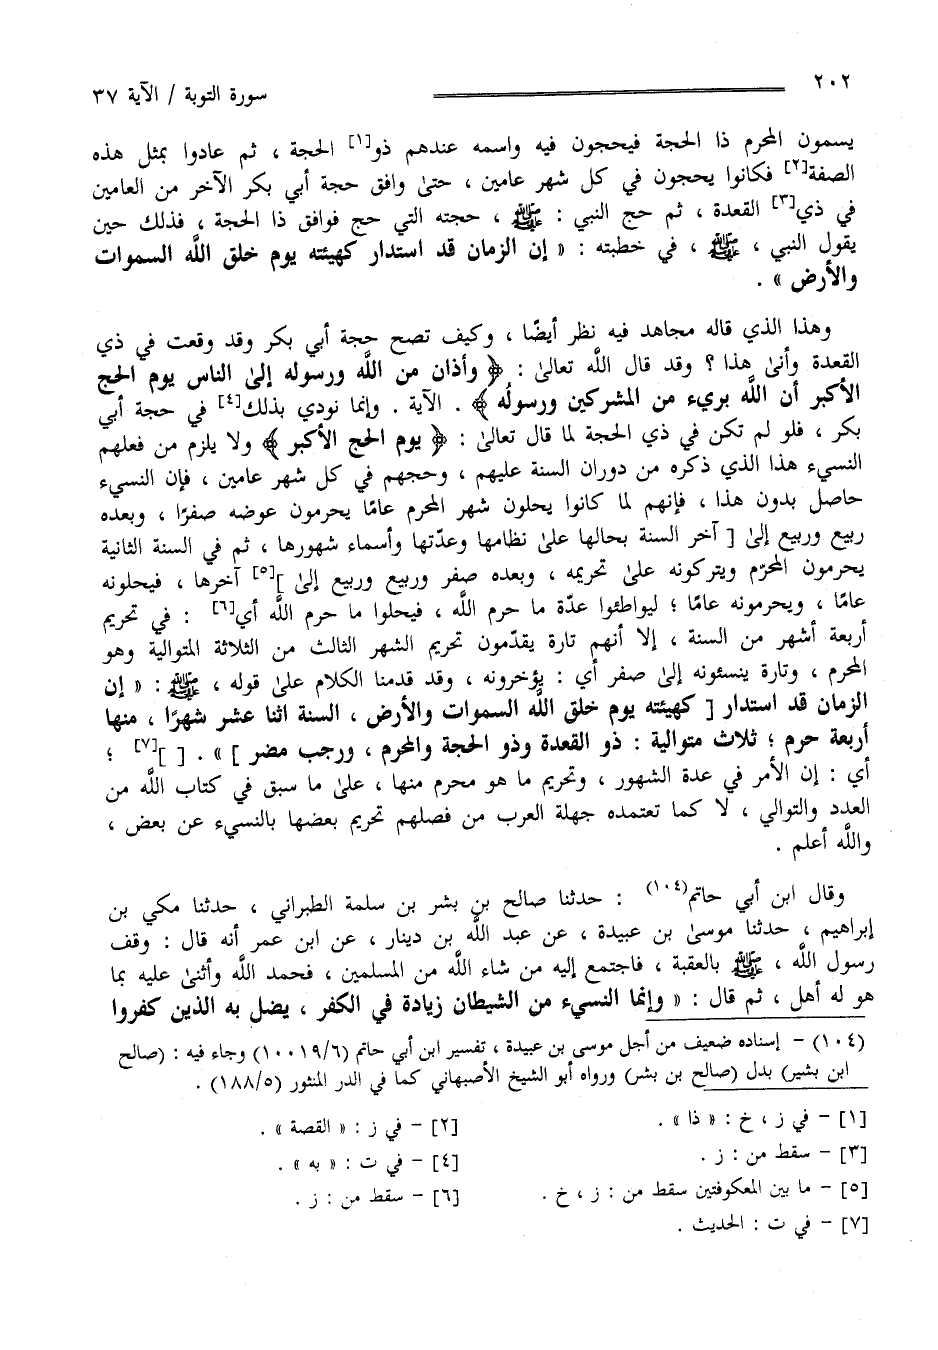 ٢٠٢
سورة التوبة / الآية ٣٧
يسمون المحرم ذا الحجة فيحجون فيه واسمه عندهم ذو[١] الحجة ، ثم عادوا بمثل هذه
الصفة[٢] فكانوا يحجون في كل شهر عامين ، حتىٰ وافق حجة أبي بكر الآخر من العامين
في ذي[٣] القعدة ، ثم حج النبي : ﷺ ، حجته التي حج فوافق ذا الحجة ، فذلك حين
يقول النبي ، ﷺ ، في خطبته : « إن الزمان قد استدار كهيئته يوم خلق اللَّه السموات
والأرض » .
وهذا الذي قاله مجاهد فيه نظر أيضًا ، وكيف تصح حجة أبي بكر وقد وقعت في ذي
القعدة وأنىٰ هذا ؟ وقد قال اللَّه تعالىٰ : ﴿ وأذان من اللَّه ورسوله إلىٰ الناس يوم الحج
الأكبر أن اللَّه بريء من المشركين ورسولُه ﴾ . الآية . وإنما نودي بذلك[٤] في حجة أبي
بكر ، فلو لم تكن في ذي الحجة لما قال تعالىٰ : ﴿ يوم الحج الأكبر ﴾ ولا يلزم من فعلهم
النسيء هذا الذي ذكره من دوران السنة عليهم ، وحجهم في كل شهر عامين ، فإن النسيء
حاصل بدون هذا ، فإنهم لما كانوا يحلون شهر المحرم عامًا يحرمون عوضه صفرًا ، وبعده
ربيع وربيع إلىٰ [ آخر السنة بحالها علىٰ نظامها وعدّتها وأسماء شهورها ، ثم في السنة الثانية
يحرمون المحرّم ويتركونه علىٰ تحريمه ، وبعده صفر وربيع وربيع إلىٰ ][٥] آخرها ، فيحلونه
عامًا ، ويحرمونه عامًا ؛ ليواطئوا عدّة ما حرم اللَّه ، فيحلوا ما حرم اللَّه أي[٦] : في تحريم
أربعة أشهر من السنة ، إلا أنهم تارة يقدّمون تحريم الشهر الثالث من الثلاثة المتوالية وهو
المحرم ، وتارة ينسئونه إلىٰ صفر أي : يؤخرونه ، وقد قدمنا الكلام علىٰ قوله ، ﷺ : « إن
الزمان قد استدار [ كهيئته يوم خلق اللَّه السموات والأرض ، السنة اثنا عشر شهرًا ، منها
أربعة حرم ؛ ثلاث متوالية : ذو القعدة وذو الحجة والمحرم ، ورجب مضر ] » . [ ][٧] ؛
أي : إن الأمر في عدة الشهور ، وتحريم ما هو محرم منها ، علىٰ ما سبق في كتاب اللَّه من
العدد والتوالي ، لا كما تعتمده جهلة العرب من فصلهم تحريم بعضها بالنسيء عن بعض ،
واللَّه أعلم .
وقال ابن أبي حاتم(١٠٤) : حدثنا صالح بن بشر بن سلمة الطبراني ، حدثنا مكي بن
إبراهيم ، حدثنا موسىٰ بن عبيدة ، عن عبد اللَّه بن دينار ، عن ابن عمر أنه قال : وقف
رسول اللَّه ، ﷺ بالعقبة ، فاجتمع إليه من شاء اللَّه من المسلمين ، فحمد اللَّه وأثنىٰ عليه بما
هو له أهل ، ثم قال : « وإنما النسيء من الشيطان زيادة في الكفر ، يضل به الذين كفروا
(١٠٤) - إسناده ضعيف من أجل موسى بن عبيدة ، تفسير ابن أبي حاتم (١٠٠١٩/٦) وجاء فيه : (صالح
ابن بشير) بدل (صالح بن بشر) ورواه أبو الشيخ الأصبهاني كما في الدر المنثور (١٨٨/٥) .
[١] - في ز ، خ : « ذا » .
[٢] - في ز : « القصة » .
[٣] - سقط من : ز .
[٤] - في ت : « به » .
[٥] - ما بين المعكوفتين سقط من : ز ، خ .
[٦] - سقط من : ز .
[٧] - في ت : الحديث .